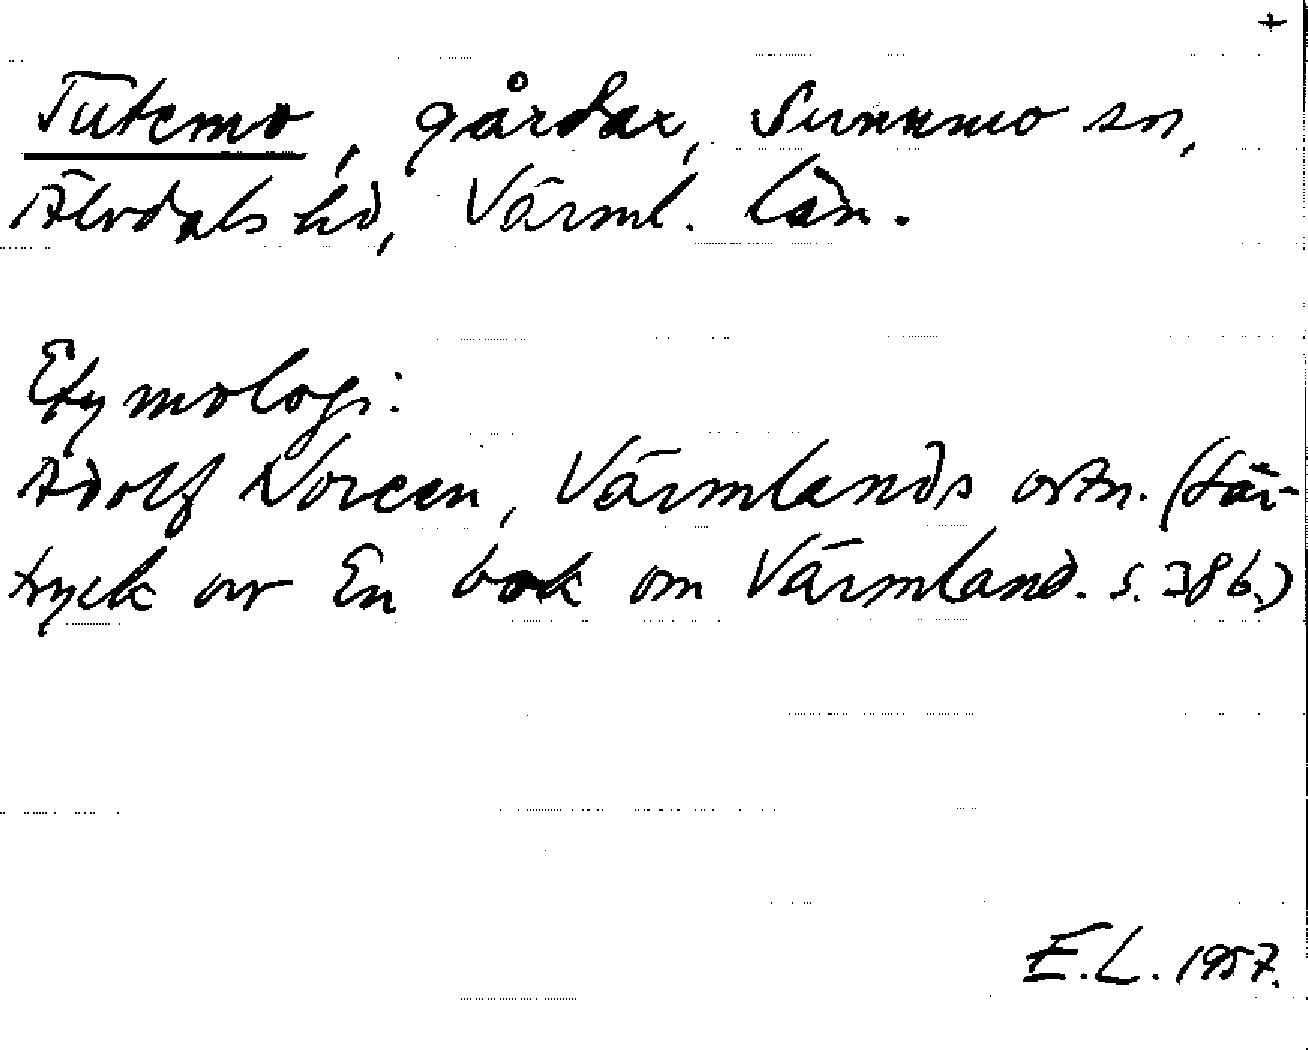 +
Tutemo, gårdar, Sunnemo sn,
Älvdals hd, Värml. län.
Etymologi:
Adolf Noreen, Värmlands ortn. (Sär-
tryck ur En bok om Värmland. s. 386.)
E.L. 1957.